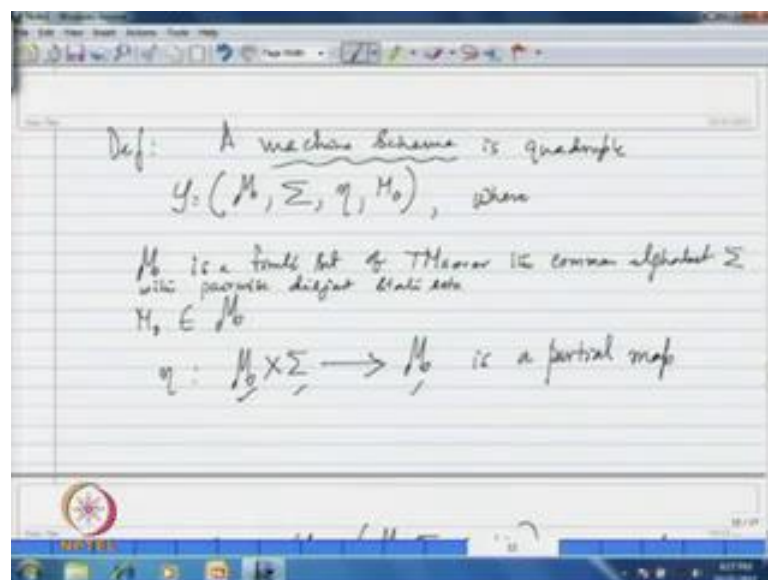 Def: A machine Scheme is quadruple
𝒴 = (ℳ, Σ, η, M₀), where
ℳ is a finite set of TMs over the common alphabet Σ
with pairwise disjoint state sets
M₀ ∈ ℳ
η : ℳ × Σ → ℳ is a partial map
NPTEL